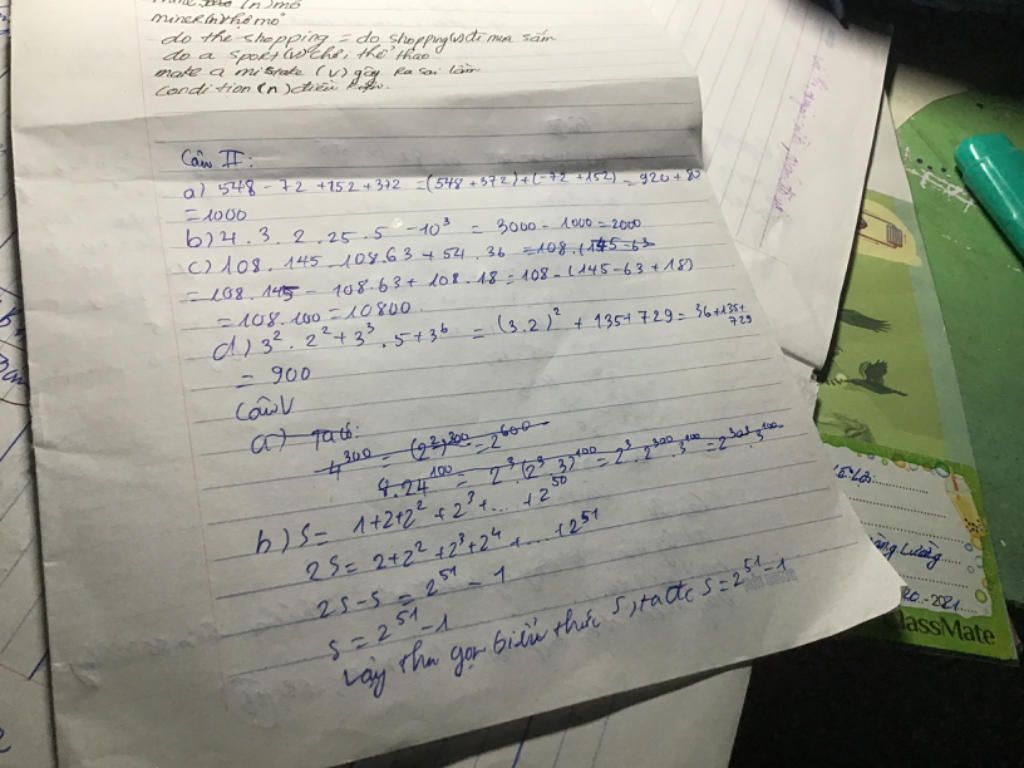 (n) mỏ
miner(n) thợ mỏ
do the shopping = do shopping(v) đi mua sắm
do a sport (v) chơi thể thao
make a mistake (v) gây ra sai lầm
condition (n) điều kiện.
Câu II:
a) 548 - 72 + 152 + 372 = (548 + 372) + (-72 + 152) = 920 + 80
= 1000
b) 4 . 3 . 2 . 25 . 5 - 10³ = 3000 - 1000 = 2000
c) 108 . 145 - 108.63 + 54 . 36 = 108 . (145 - 63
= 108 . 145 - 108 . 63 + 108 . 18 = 108 - (145 - 63 + 18)
= 108 . 100 = 10800.
d) 3² . 2² + 3³ . 5 + 3⁶ = (3.2)² + 135 + 729 = 36 + 135 +
729
= 900
Câu V
a) Ta có:
4³⁰⁰ = (2²)³⁰⁰ = 2⁶⁰⁰
8.24¹⁰⁰ = 2³.(2³.3)¹⁰⁰ = 2³.2³⁰⁰.3¹⁰⁰ = 2³⁰³.3¹⁰⁰
b) S = 1 + 2 + 2² + 2³ + ... + 2⁵⁰
2S = 2 + 2² + 2³ + 2⁴ + ... + 2⁵¹
2S - S = 2⁵¹ - 1
S = 2⁵¹ - 1
Vậy thu gọn biểu thức S, ta đc S = 2⁵¹ - 1
Lương
20..-2021
ClassMate